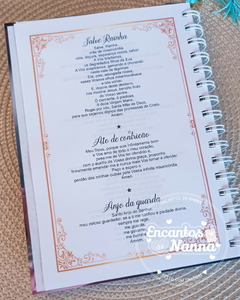 Salve Rainha
Salve, Rainha
mãe de misericórdia,
vida, doçura, esperança nossa, salve!
A Vós bradamos,
os degredados filhos de Eva.
A Vós suspiramos, gemendo e chorando
neste vale de lágrimas.
Eia, pois, advogada nossa,
esses Vossos olhos misericordiosos
a nós volvei.
E, depois deste desterro,
nos mostrai Jesus, bendito fruto
do Vosso ventre.
Ó clemente, ó piedosa,
ó doce Virgem Maria.
Rogai por nós, Santa Mãe de Deus,
para que sejamos dignos das promessas de Cristo.
Amém.
Ato de contrição
Meu Deus, porque sois infinitamente bom
e Vos amo de todo o meu coração,
pesa-me de Vos ter ofendido e,
com o auxílio da Vossa divina graça, proponho
firmemente emendar-me e nunca mais Vos tornar a ofender.
Peço e espero o
perdão das minhas culpas pela Vossa infinita misericórdia.
Amém.
Anjo da guarda
Santo Anjo do Senhor,
meu zeloso guardador, se a ti me confiou a piedade divina,
sempre me rege,
me
Amém.
Encantos
da
Nanna